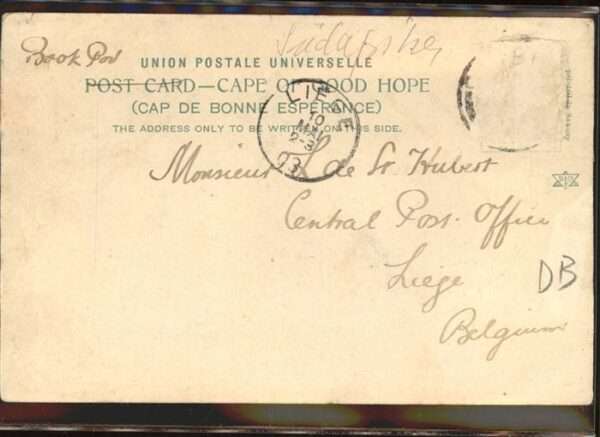 Book Post
Südafrika
UNION POSTALE UNIVERSELLE
POST CARD—CAPE OF GOOD HOPE
(CAP DE BONNE ESPÉRANCE)
THE ADDRESS ONLY TO BE WRITTEN ON THIS SIDE.
LIEGE
10
MAI
2-3
03
Monsieur H de St Hubert
Central Post Office
Liege
DB
Belgium